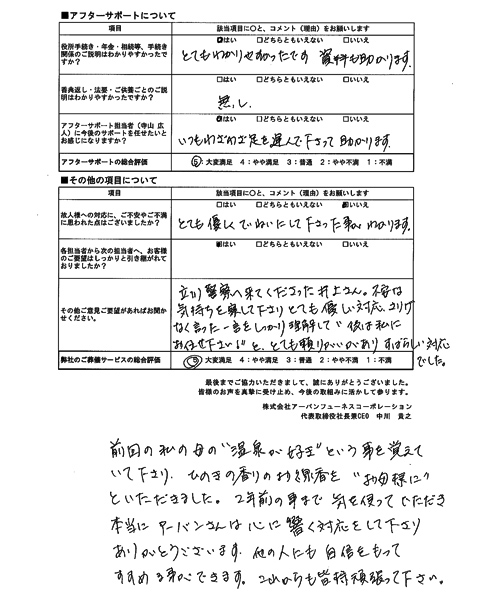 ■アフターサポートについて
項目 該当項目に○と、コメント（理由）をお願いします
役所手続き・年金・相続等、手続き関係のご説明はわかりやすかったですか？
□はい □どちらともいえない □いいえ
とてもわかりやすかったです 資料も助かります。
香典返し・法要・ご供養ごとのご説明はわかりやすかったですか？
□はい □どちらともいえない □いいえ
無し.
アフターサポート担当者（寺山 広人）に今後のサポートを任せたいとお感じになりますか？
□はい □どちらともいえない □いいえ
いつもわざわざ足を運んで下さって助かります。
アフターサポートの総合評価 ⑤大変満足 4：やや満足 3：普通 2：やや不満 1：不満
■その他の項目について
項目 該当項目に○と、コメント（理由）をお願いします
故人様への対応に、ご不安やご不満に思われた点はございましたか？
□はい □どちらともいえない □いいえ
とても優しくていねいにして下さった事がわかります.
各担当者から次の担当者へ、お客様のご要望はしっかりと引き継がれておりましたか？
□はい □どちらともいえない □いいえ
その他ご意見ご要望があればお聞かせください。
立川警察へ来てくださった井上さん。不安な
気持ちを察して下さりとても優しい対応、さりげ
なく言った一言をしっかり理解して"後は私に
お任せ下さい"と、とても頼りがいがあり すばらしい対応
でした。
弊社のご葬儀サービスの総合評価 ⑤大変満足 4：やや満足 3：普通 2：やや不満 1：不満
最後までご協力いただきまして、誠にありがとうございました。
皆様のお声を真摯に受け止め、今後の取組みに活かして参ります。
株式会社アーバンフューネスコーポレーション
代表取締役社長兼CEO 中川 貴之
前回の私の母の"温泉が好き"という事を覚えて
いて下さり、ひのきの香りのお線香を"お母様に"
といただきました。2年前の事まで気を使っていただき
本当にアーバンさんは心に響く対応をして下さり
ありがとうございます. 他の人にも自信をもって
すすめる事ができます。これからも皆様頑張って下さい。